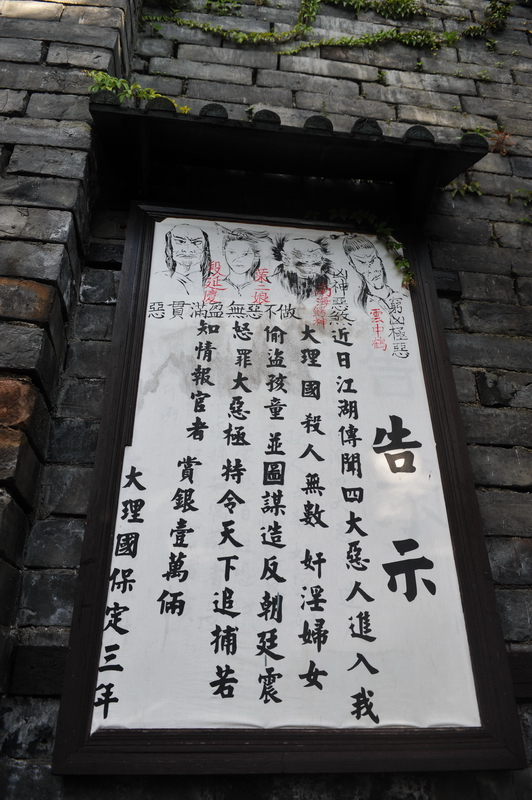 告示
窮凶極惡
雲中鶴
凶神惡煞
南海鱷神
葉二娘
段延慶
惡貫滿盈 無惡不做
近日江湖傳聞四大惡人進入我
大理國殺人無數 奸淫婦女
偷盜孩童並圖謀造反朝廷震
怒罪大惡極特令天下追捕若
知情報官者 賞銀壹萬倆
大理國保定三年